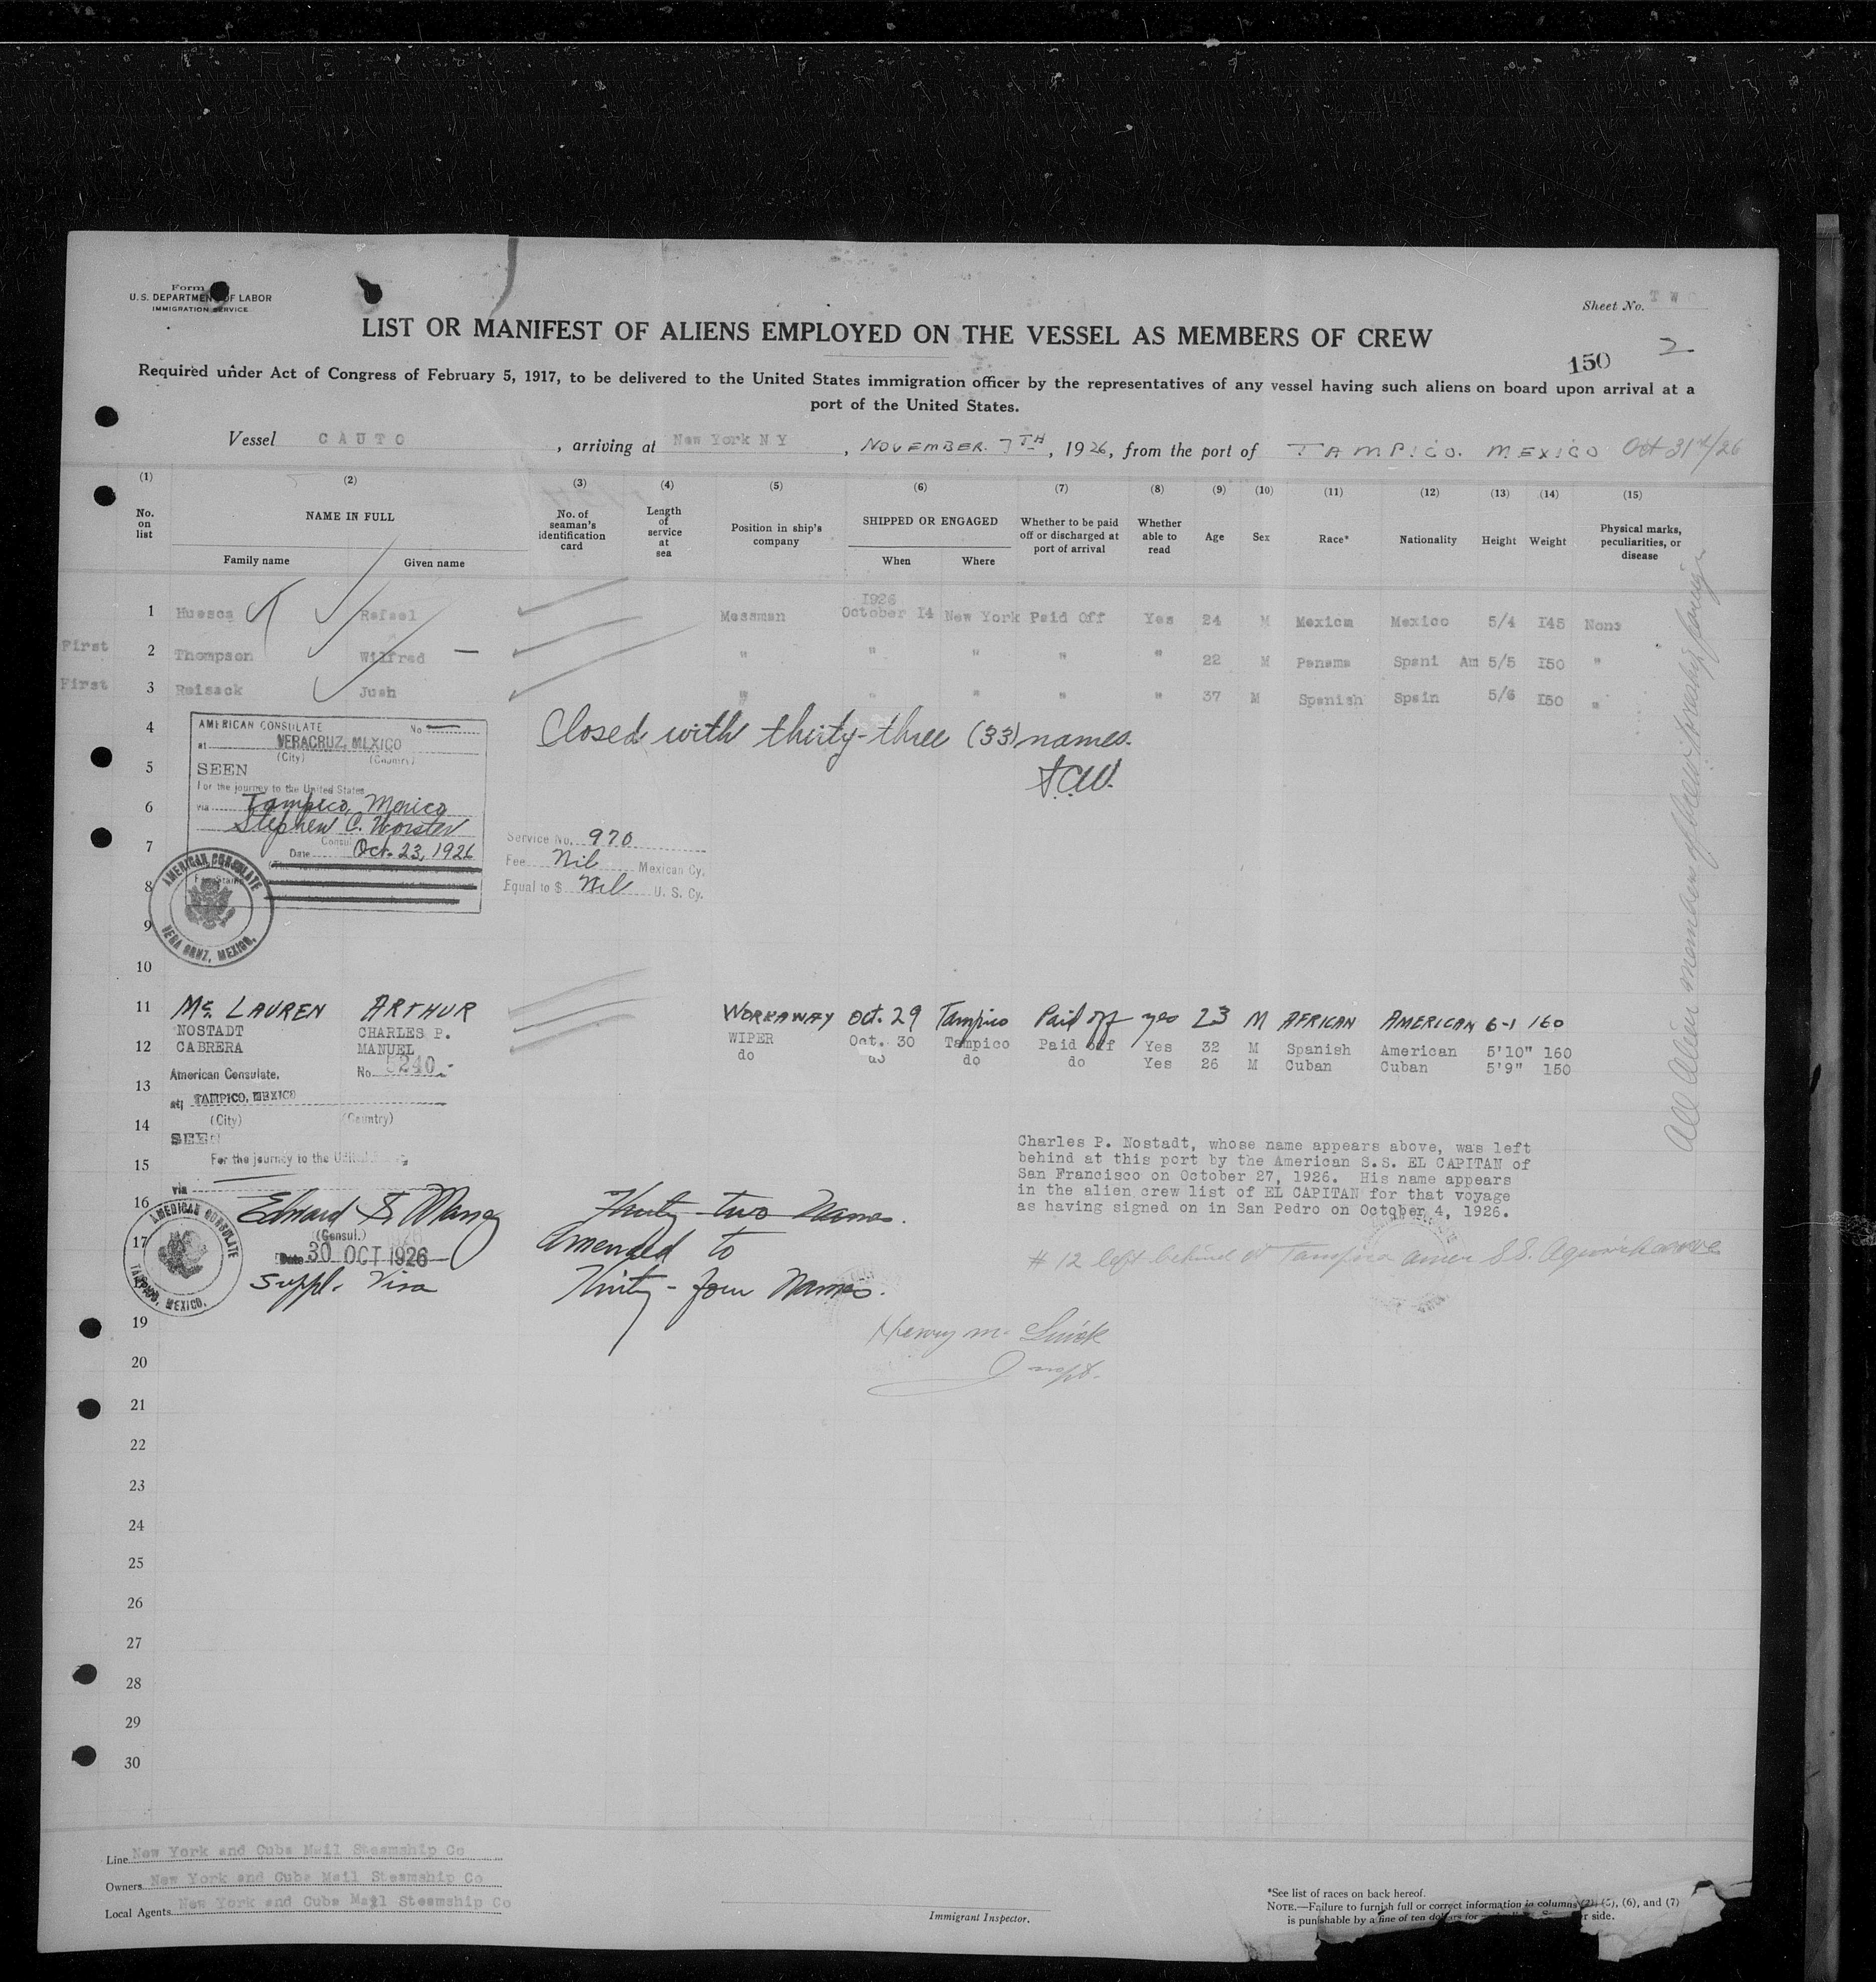 Form
U. S. DEPARTMENT OF LABOR
IMMIGRATION SERVICE
Sheet No. TW
LIST OR MANIFEST OF ALIENS EMPLOYED ON THE VESSEL AS MEMBERS OF CREW
150 2
Required under Act of Congress of February 5, 1917, to be delivered to the United States immigration officer by the representatives of any vessel having such aliens on board upon arrival at a
port of the United States.
Vessel CAUTO, arriving at New York N Y, NOVEMBER. 7TH, 1926, from the port of TAMPICO. MEXICO Oct 31st/26
(1) (2) (3) (4) (5) (6) (7) (8) (9) (10) (11) (12) (13) (14) (15)
No. on list
NAME IN FULL
Family name
Given name
No. of seaman's identification card
Length of service at sea
Position in ship's company
SHIPPED OR ENGAGED
When
Where
Whether to be paid off or discharged at port of arrival
Whether able to read
Age
Sex
Race*
Nationality
Height
Weight
Physical marks, peculiarities, or disease
1 Huesca Rafael Messman 1926 October 14 New York Paid Off Yes 24 M Mexicm Mexico 5/4 145 None
First 2 Thompson Wilfred — " " " " " 22 M Panama Spani Am 5/5 150 "
First 3 Reisack Jush " " " " " 37 M Spanish Spain 5/6 150 "
4
5
6
7
8
9
10
AMERICAN CONSULATE No —
at VERACRUZ, MEXICO
(City) (Country)
SEEN
For the journey to the United States
via Tampico, Mexico
Stephen C. Worster
Consul
Date Oct. 23, 1926
AMERICAN CONSULATE
VERA CRUZ, MEXICO.
Closed with thirty-three (33) names.
S.C.W.
Service No. 970
Fee Nil Mexican Cy.
Equal to $ Nil U. S. Cy.
11 Mc LAUREN ARTHUR WORKAWAY Oct. 29 Tampico Paid off yes 23 M AFRICAN AMERICAN 6-1 160
NOSTADT CHARLES P. WIPER Oct. 30 Tampico Paid off Yes 32 M Spanish American 5'10" 160
12 CABRERA MANUEL do do do do Yes 26 M Cuban Cuban 5'9" 150
13
14
15
16
17
American Consulate. No 5240.-
at TAMPICO, MEXICO
(City) (Country)
SEEN
For the journey to the United
via
(Consul.)
Date 30 OCT 1926
Suppl. Visa
AMERICAN CONSULATE
TAMPICO, MEXICO.
Charles P. Nostadt, whose name appears above, was left
behind at this port by the American S.S. EL CAPITAN of
San Francisco on October 27, 1926. His name appears
in the alien crew list of EL CAPITAN for that voyage
as having signed on in San Pedro on October 4, 1926.
Thirty-two Names.
Amended to
Thirty-four Names.
# 12 left behind at Tampico amer SS.
Henry M.
Inspt.
All Alien members of crew
19
20
21
22
23
24
25
26
27
28
29
30
Line New York and Cuba Mail Steamship Co
Owners New York and Cuba Mail Steamship Co
Local Agents New York and Cuba Mail Steamship Co
Immigrant Inspector.
*See list of races on back hereof.
NOTE.—Failure to furnish full or correct information in columns (2), (5), (6), and (7)
is punishable by a fine of ten dollars for
r side.